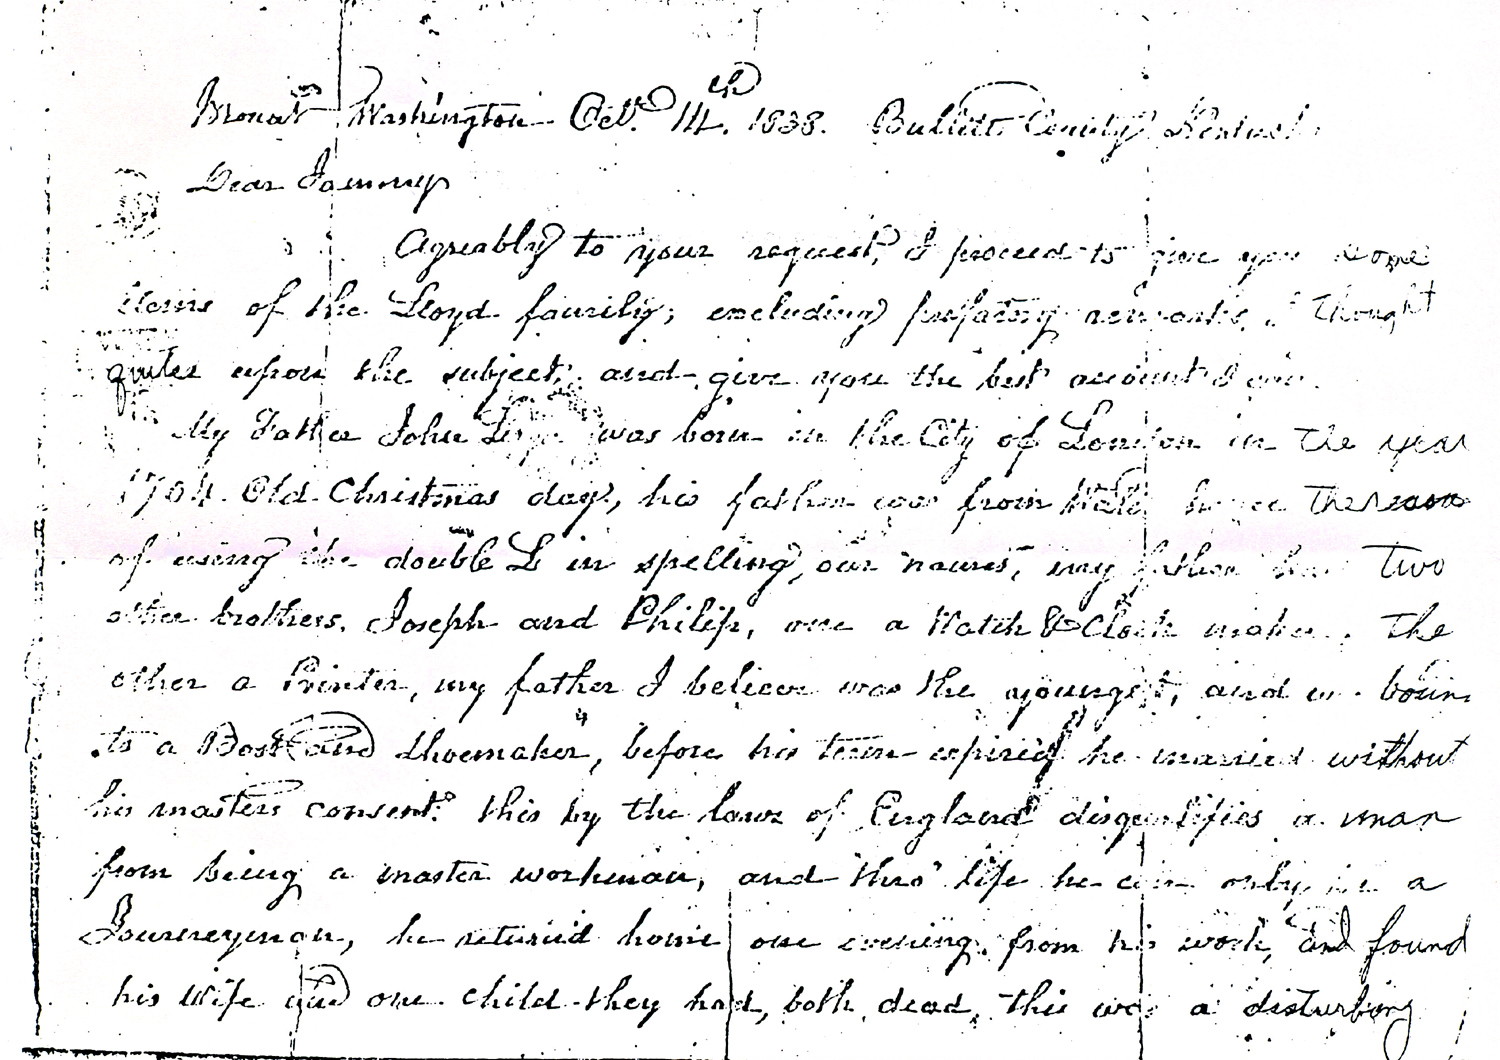 Mount Washington Octr. 14th. 1838. Bullitt County
Dear Tommy
Agreably to your request, I proceed to give you some
items of the Lloyd family; excluding prefatory remarks, I thought
quiter upon the subject, and give you the best account I can.
My Father John was born in the City of London in the year
1704. Old Christmas day, his father was from Wales hence the reason
of using the double L in spelling, our names, my father had two
other brothers. Joseph and Philip, one a Watch & Clock maker. The
other a Printer, my father I believe was the youngest, and was boun
to a Boot and Shoemaker, before his term expired he married without
his masters consent. this by the laws of England disqualifies a man
from being a master workman, and thro' life he can only be a
Journeyman, he returnd home one evening, from his work, and found
his Wife and one child they had, both dead, this was a disturbing